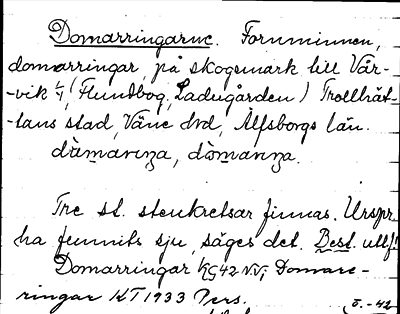 Domarringarne. Fornminnen,
domarringar, på skogsmark till Vär-
-vik 1/1, (Hundbog, Ladugården) Trollhät-
-tans stad, Väne hd, Älfsborgs län.
dòmarıŋa, dòmarıŋa.
Tre st. stenkretsar finnas. Urspr.
ha funnits sju, säges det. Best. utlf!
Domarringar KG42 NV; Domare-
ringar KT 1933 Pers.
ö. -42